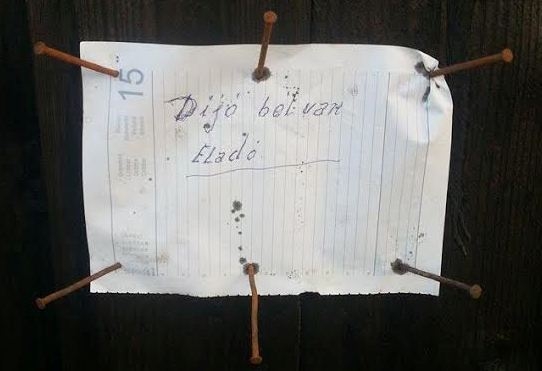 15
Dijó bél van
Eladó